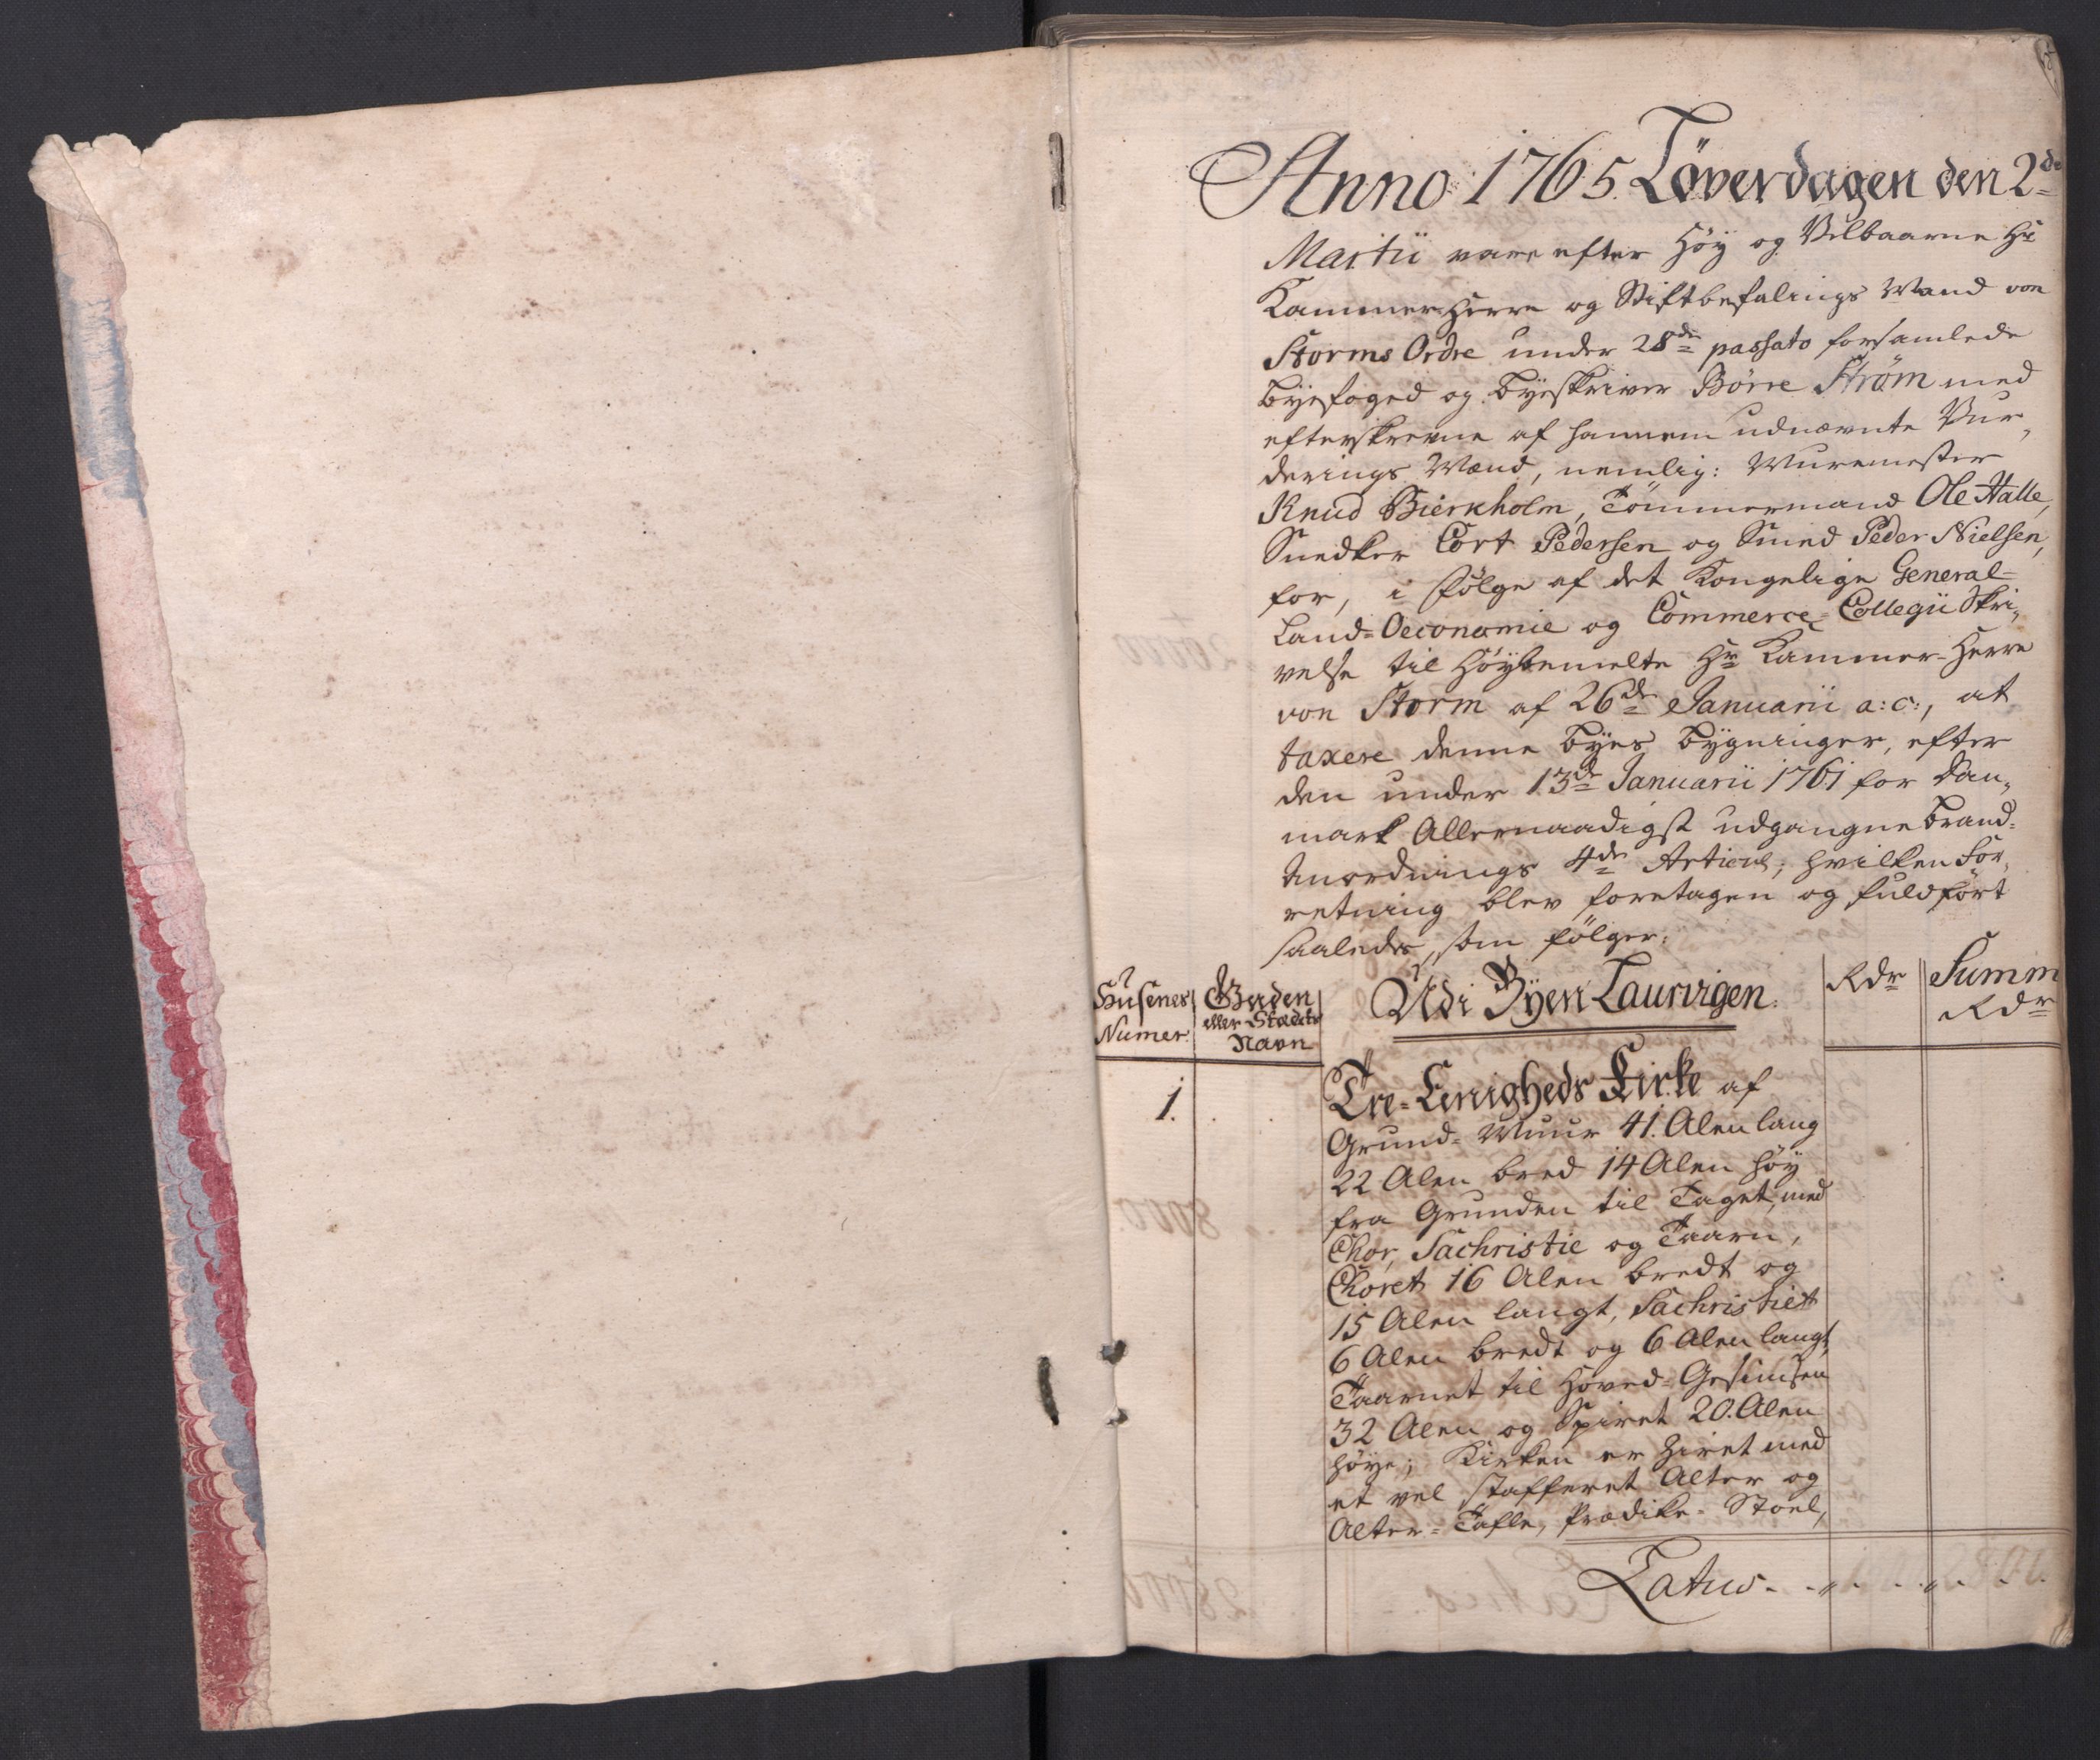 Anno 1765. Løverdagen den 2de
Martii vare efter Høy og Velbaarne Hr
Kammer-Herre og Stiftbefalings Mand von
Storms Ordre under 28de passato forsamlede
Byefoged og Byeskriver Börre Ström med
efterskrevne af hannem udnævnte Vur-
derings Mænd, nemlig: Muremester
Knud Bierkholm, Tömmermand Ole Halle,
Snedker Cort Pedersen og Smed Peder Nielsen,
for, i Fölge af det Kongelige General-
Land-Oeconomie og Commerce-Collegii Skri-
velse til Höybemelte Hr Kammer-Herre
von Storm af 26de Januarii a: c:, at
taxere denne Byes Bygninger, efter
den under 13de Januarii 1761 for Dan-
mark Allernaadigst udgangne Brand-
Anordnings 4de Articul; hvilken For-
retning blev foretagen og fuldfört
saaledes, som fölger:
Husenes Numer.
Gaden eller Stædets Navn
Udi Byen Laurvigen.
Rdr
Summ Rdr
1.
Tre-Eenigheds Kirke af
Grund-Muur 41. Alen lang
22 Alen bred 14 Alen höy
fra Grunden til Taget, med
Chor, Sachristie og Taarn,
Choret 16 Alen bredt og
15 Alen langt, Sachristiet
6 Alen bredt og 6 Alen langt,
Taarnet til Hoved-Gesimsen
32 Alen og Spiret 20. Alen
höye; Kirken er ziret med
et vel stafferet Alter og
Alter-Tafle, Prædike-Stoel,
Latus